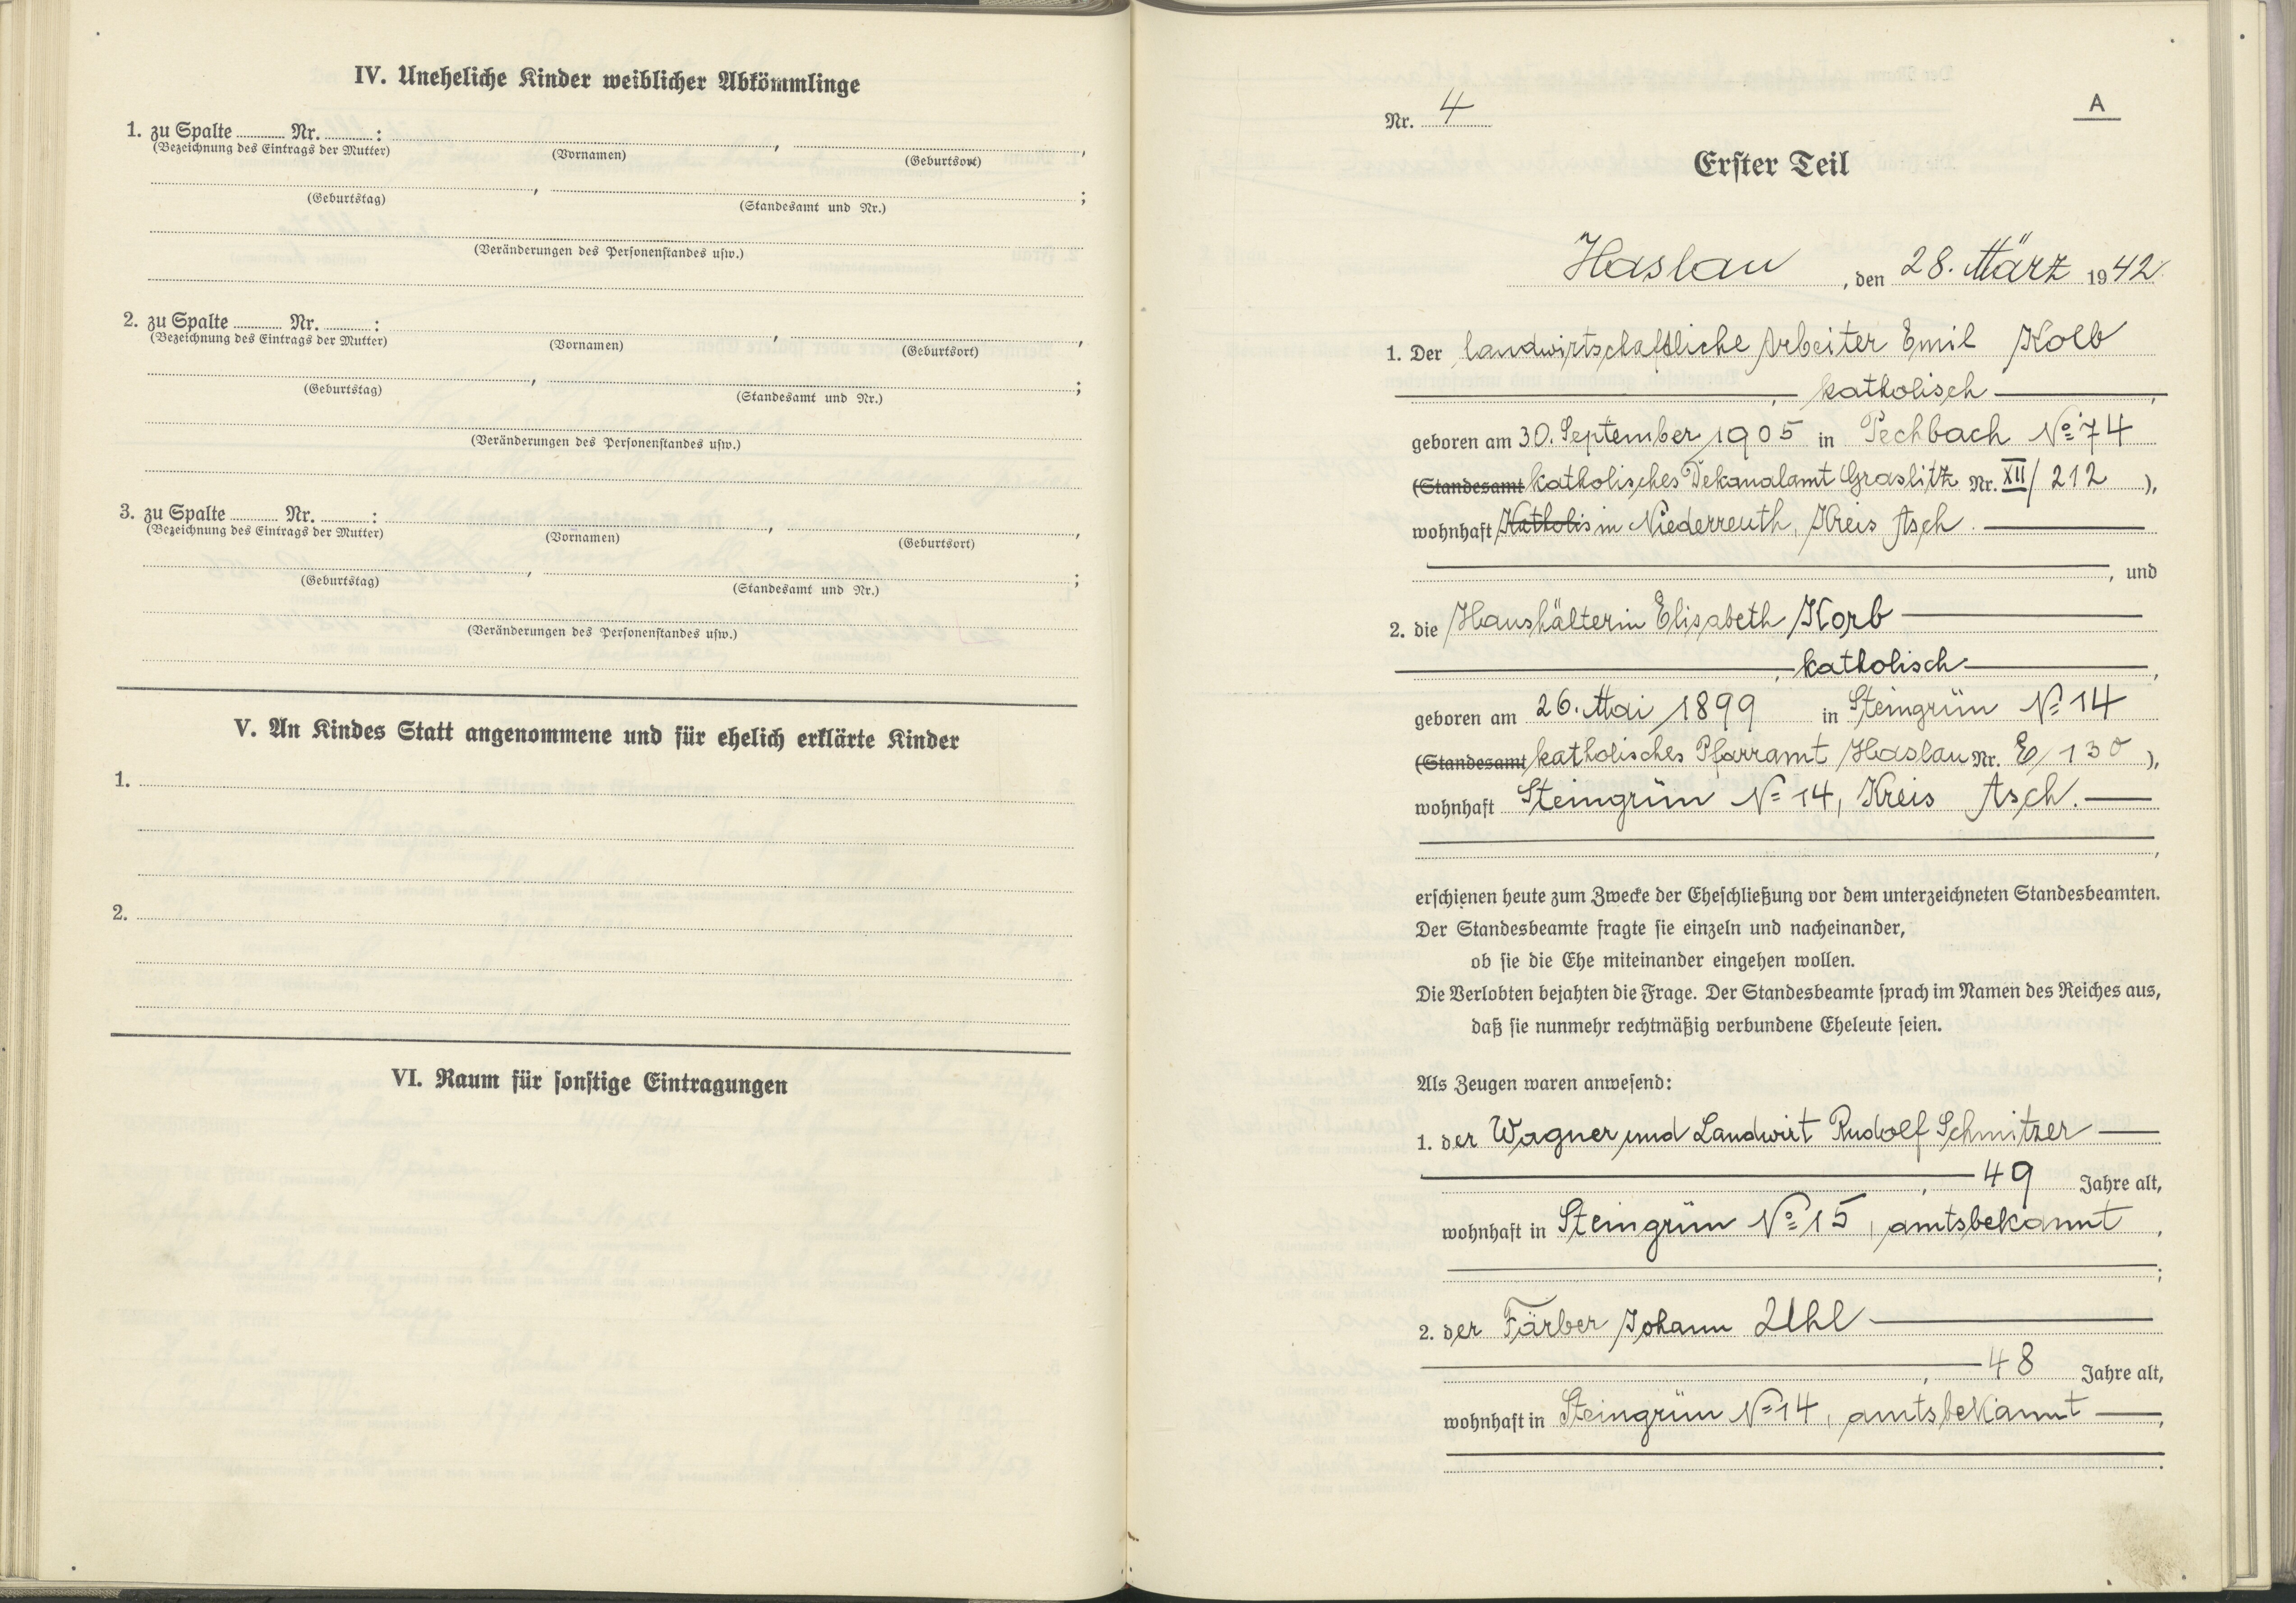 IV. Uneheliche Kinder weiblicher Abkömmlinge
1. zu Spalte ........ Nr. ........ :
(Bezeichnung des Eintrags der Mutter) (Vornamen) (Geburtsort)
(Geburtstag) (Standesamt und Nr.)
(Veränderungen des Personenstandes usw.)
2. zu Spalte ........ Nr. ........ :
(Bezeichnung des Eintrags der Mutter) (Vornamen) (Geburtsort)
(Geburtstag) (Standesamt und Nr.)
(Veränderungen des Personenstandes usw.)
3. zu Spalte ........ Nr. ........ :
(Bezeichnung des Eintrags der Mutter) (Vornamen) (Geburtsort)
(Geburtstag) (Standesamt und Nr.)
(Veränderungen des Personenstandes usw.)
V. An Kindes Statt angenommene und für ehelich erklärte Kinder
1.
2.
VI. Raum für sonstige Eintragungen
A
Nr. 4
Erster Teil
Haslau, den 28. März 1942
1. Der landwirtschaftliche Arbeiter Emil Kolb
, katholisch ,
geboren am 30. September 1905 in Pechbach No 74
(Standesamt katholisches Dekanalamt Graslitz Nr. XII/212 ),
wohnhaft Katholis in Niederreuth, Kreis Asch.
, und
2. die Haushälterin Elisabeth Korb
, katholisch ,
geboren am 26. Mai 1899 in Steingrün No 14
(Standesamt katholisches Pfarramt Haslau Nr. E/130 ),
wohnhaft Steingrün No 14, Kreis Asch.
,
erschienen heute zum Zwecke der Eheschließung vor dem unterzeichneten Standesbeamten.
Der Standesbeamte fragte sie einzeln und nacheinander,
ob sie die Ehe miteinander eingehen wollen.
Die Verlobten bejahten die Frage. Der Standesbeamte sprach im Namen des Reiches aus,
daß sie nunmehr rechtmäßig verbundene Eheleute seien.
Als Zeugen waren anwesend:
1. der Wagner und Landwirt Rudolf Schmitzer
, 49 Jahre alt,
wohnhaft in Steingrün No 15, amtsbekannt ,
;
2. der Färber Johann Uhl
, 48 Jahre alt,
wohnhaft in Steingrün No 14, amtsbekannt ,
.